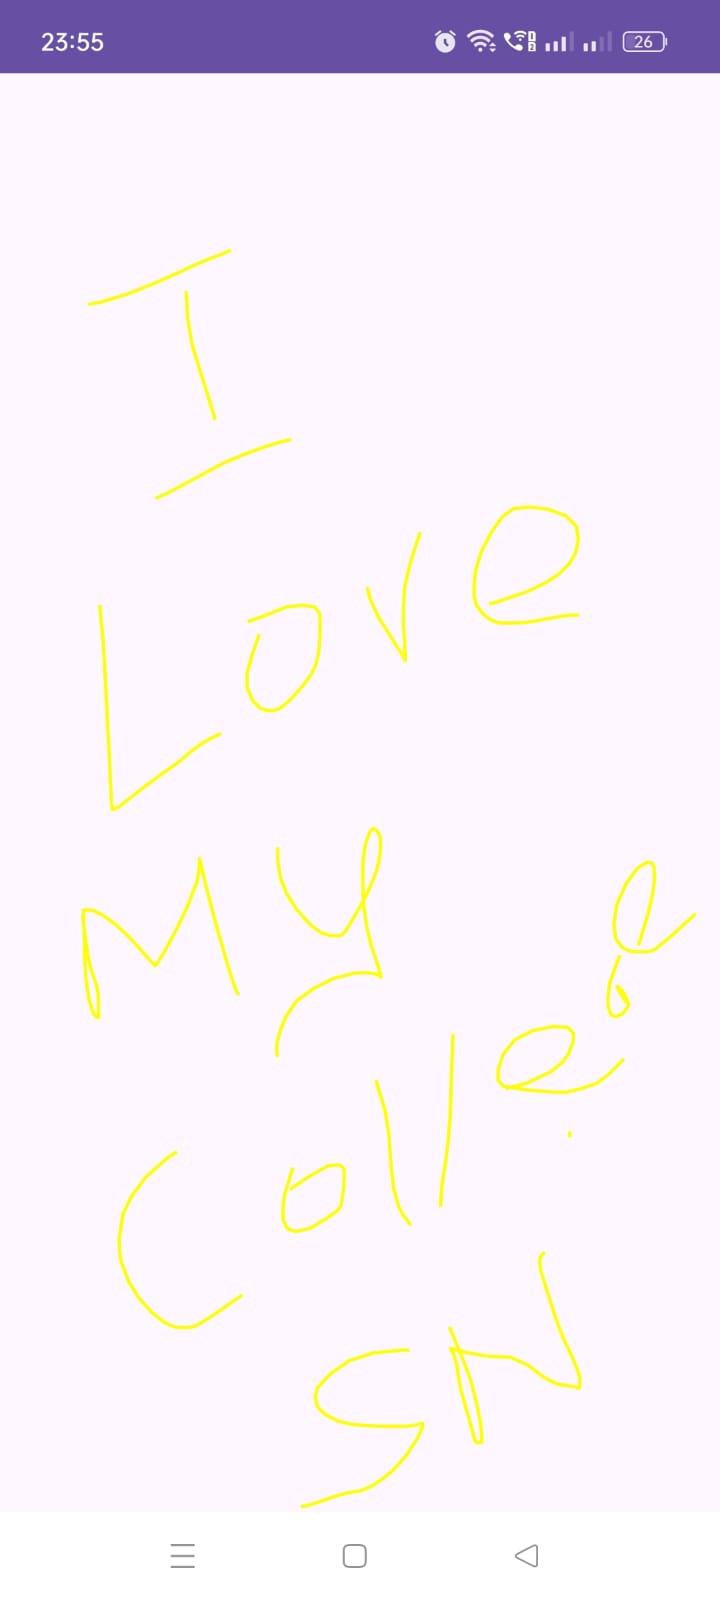 23:55
26
I
Love
My
College
SN